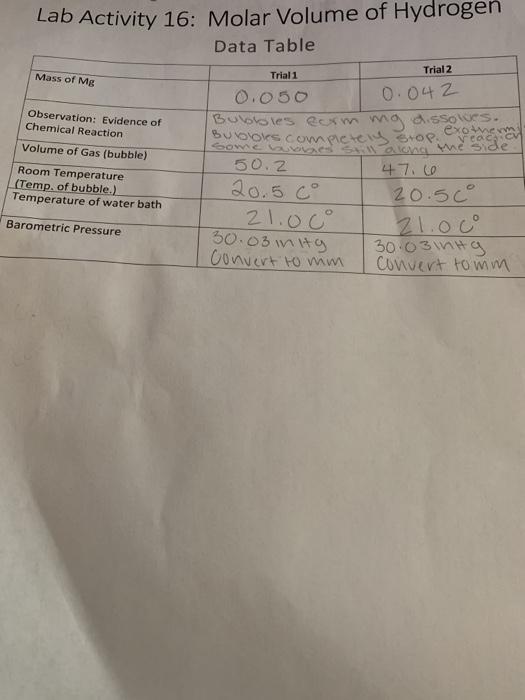 Lab Activity 16: Molar Volume of Hydrogen
Data Table
Trial 1 Trial 2
Mass of Mg 0.050 0.042
Observation: Evidence of Chemical Reaction
Bubbles form mg dissolves.
Bubbles completely stop. exothermic reaction
Some bubbles still along the side.
Volume of Gas (bubble) 50.2 47.6
Room Temperature
(Temp. of bubble.) 20.5 C° 20.5 C°
Temperature of water bath 21.0 C° 21.0 C°
Barometric Pressure 30.03 inHg 30.03 inHg
Convert to mm Convert to mm